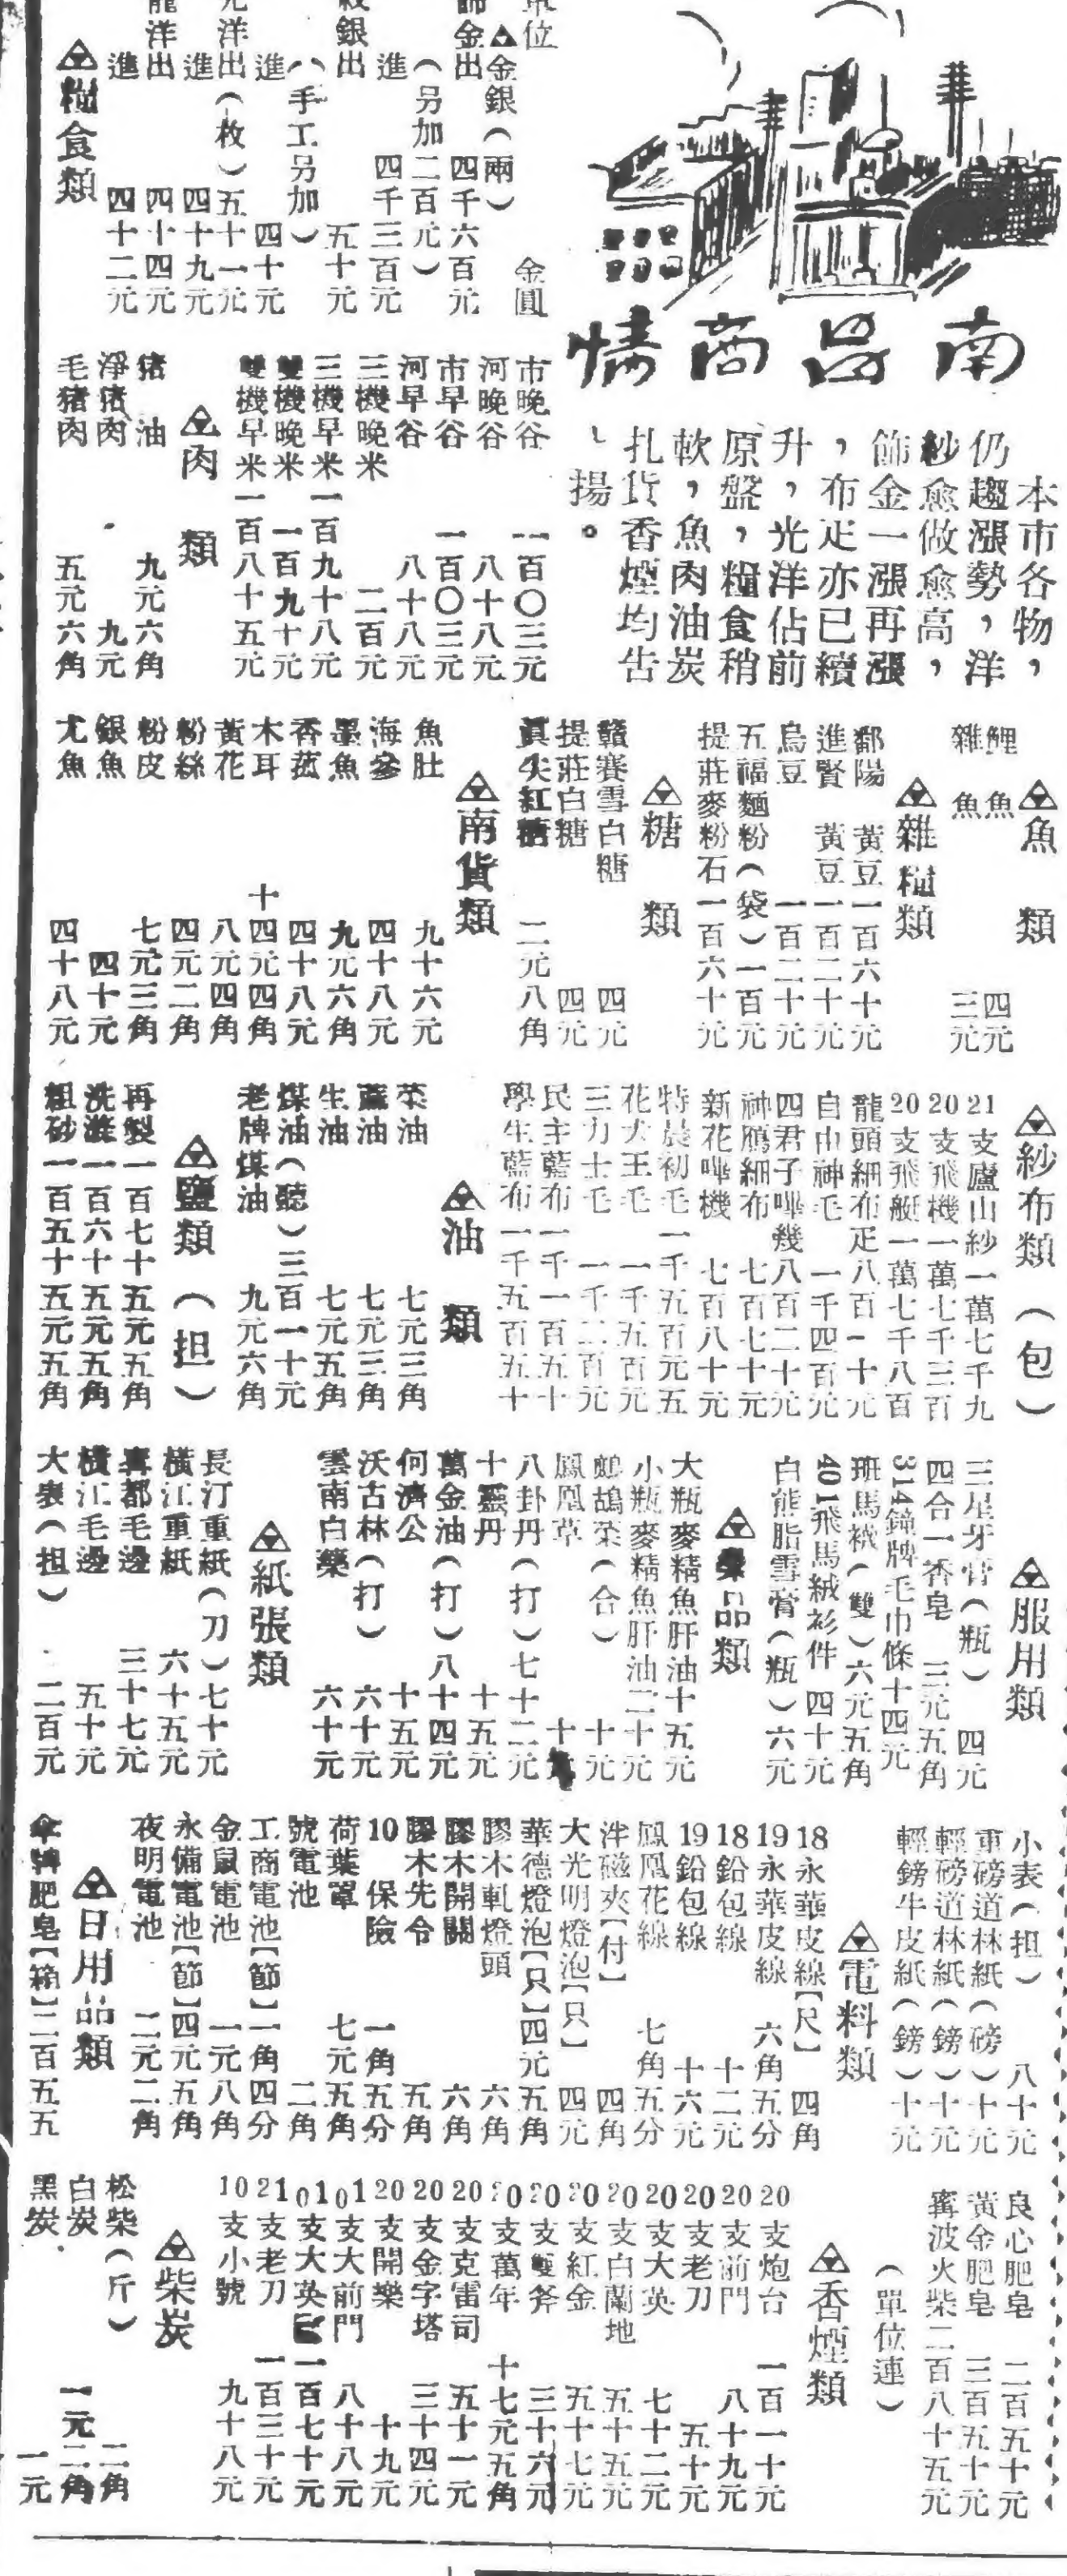 南昌商情
本市各物，
仍趨漲勢，洋
紗愈做愈高，
飾金一漲再漲
，布疋亦已續
升，光洋佔前
原盤，糧食稍
軟，魚肉油炭
扎貨香煙均告
揚。
單位 金圓
金銀（兩）
飾金出 四千六百元
（另加二百元）
進 四千三百元
紋銀出 五十元
（手工另加）
進 四十元
光洋出（枚）五十一元
進 四十九元
龍洋出 四十四元
進 四十二元
糧食類
市晚谷 一百〇三元
河晚谷 八十八元
市早谷 一百〇三元
河早谷 八十八元
三機晚米 二百元
三機早米一百九十八元
雙機晚米 一百九十元
雙機早米一百八十五元
肉類
猪油 九元六角
淨猪肉 九元
毛猪肉 五元六角
魚類
鯉魚 四元
雜魚 三元
雜糧類
鄱陽黃豆一百六十元
進賢黃豆一百二十元
烏豆 一百二十元
五福麵粉（袋）一百元
提莊麥粉石一百六十元
糖類
贛賽雪白糖 四元
提莊白糖 四元
眞尖紅糖 二元八角
南貨類
魚肚 九十六元
海參 四十八元
墨魚 九元六角
香菰 四十八元
木耳 十四元四角
黃花 八元四角
粉絲 四元二角
粉皮 七元三角
銀魚 四十元
尤魚 四十八元
紗布類（包）
21支廬山紗一萬七千九
20支飛機一萬七千三百
20支飛艇一萬七千八百
龍頭細布疋八百一十元
自由神毛 一千四百元
四君子嗶幾八百二十元
神鷹細布 七百七十元
新花嗶機 七百八十元
特晨初毛一千五百元五
花犬王毛 一千五百元
三力士毛 一千二百元
民主藍布一千一百五十
學生藍布一千五百五十
油類
菜油 七元三角
蔴油 七元三角
生油 七元五角
煤油（聽）三百一十元
老牌煤油 九元六角
鹽類（担）
再製一百七十五元五角
洗滌一百六十五元五角
粗砂一百五十五元五角
服用類
三星牙膏（瓶） 四元
四合一香皂 三元五角
314鐘牌毛巾條十四元
班馬襪（雙）六元五角
401飛馬絨衫件 四十元
白熊脂雪膏（瓶）六元
藥品類
大瓶麥精魚肝油十五元
小瓶麥精魚肝油二十元
鷓鴣菜（合） 十元
鳳凰草 十元
八卦丹（打）七十二元
十靈丹 十五元
萬金油（打）八十四元
何濟公 十五元
沃古林（打） 六十元
雲南白藥 六十元
紙張類
長汀重紙（刀）七十元
橫江重紙 六十五元
寗都毛邊 三十七元
橫江毛邊 五十元
大表（担） 二百元
小表（担） 八十元
重磅道林紙（磅）十元
輕磅道林紙（鎊）十元
輕鎊牛皮紙（鎊）十元
電料類
18永華皮線【尺】 四角
19永華皮線 六角五分
18鉛包線 十二元
19鉛包線 十六元
鳳凰花線 七角五分
洋磁夾【付】 四角
大光明燈泡【只】 四元
華德燈泡【只】四元五角
膠木軋燈頭 六角
膠木開關 六角
膠木先令 五角
10保險 一角五分
荷葉罩 七元五角
號電池 二角
工商電池【節】一角四分
金鼠電池 一元八角
永備電池【節】四元五角
夜明電池 二元二角
日用品類
傘牌肥皂【箱】二百五五
良心肥皂 二百五十元
黃金肥皂 三百五十元
寗波火柴二百八十五元
（單位連）
香煙類
20支炮台 一百一十元
20支前門 八十九元
20支老刀 五十元
20支大英 七十二元
20支白蘭地 五十五元
20支紅金 五十七元
20支雙斧 三十六元
20支萬年 十七元五角
20支克雷司 五十一元
20支金字塔 三十四元
20開樂 十九元
10支大前門 八十八元
10支大英 一百七十元
21支老刀 一百三十元
10支小號 九十八元
柴炭
松柴（斤） 二角
白炭 一元二角
黑炭 一元